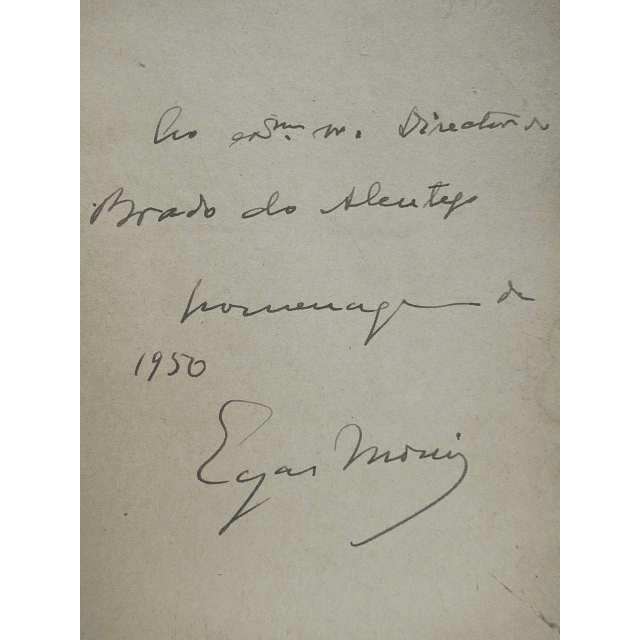 Ao exmo. sr. Director do
Brado do Alentejo
homenagem de
1950
Egas Moniz